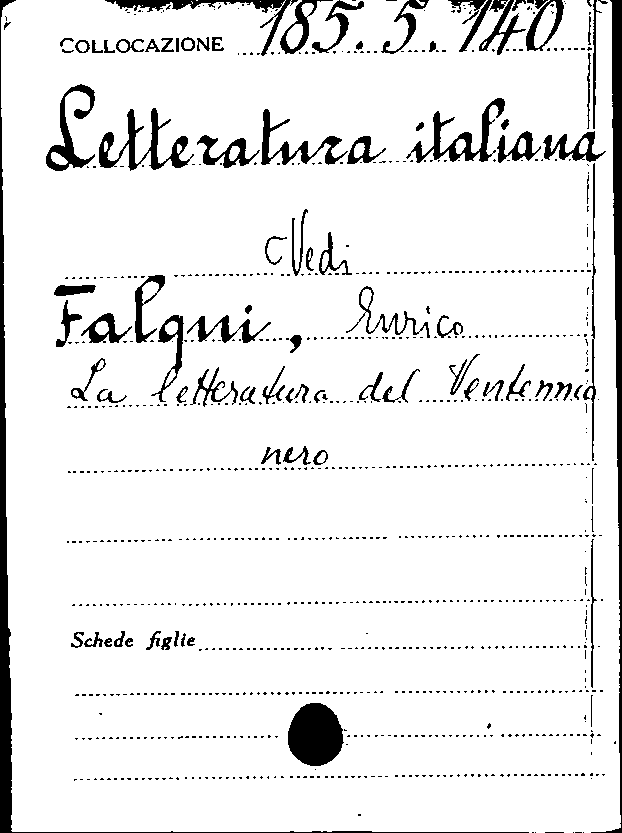 COLLOCAZIONE 185.5.140
Letteratura italiana
Vedi
Falqui, Enrico
La letteratura del Ventennio
nero
Schede figlie